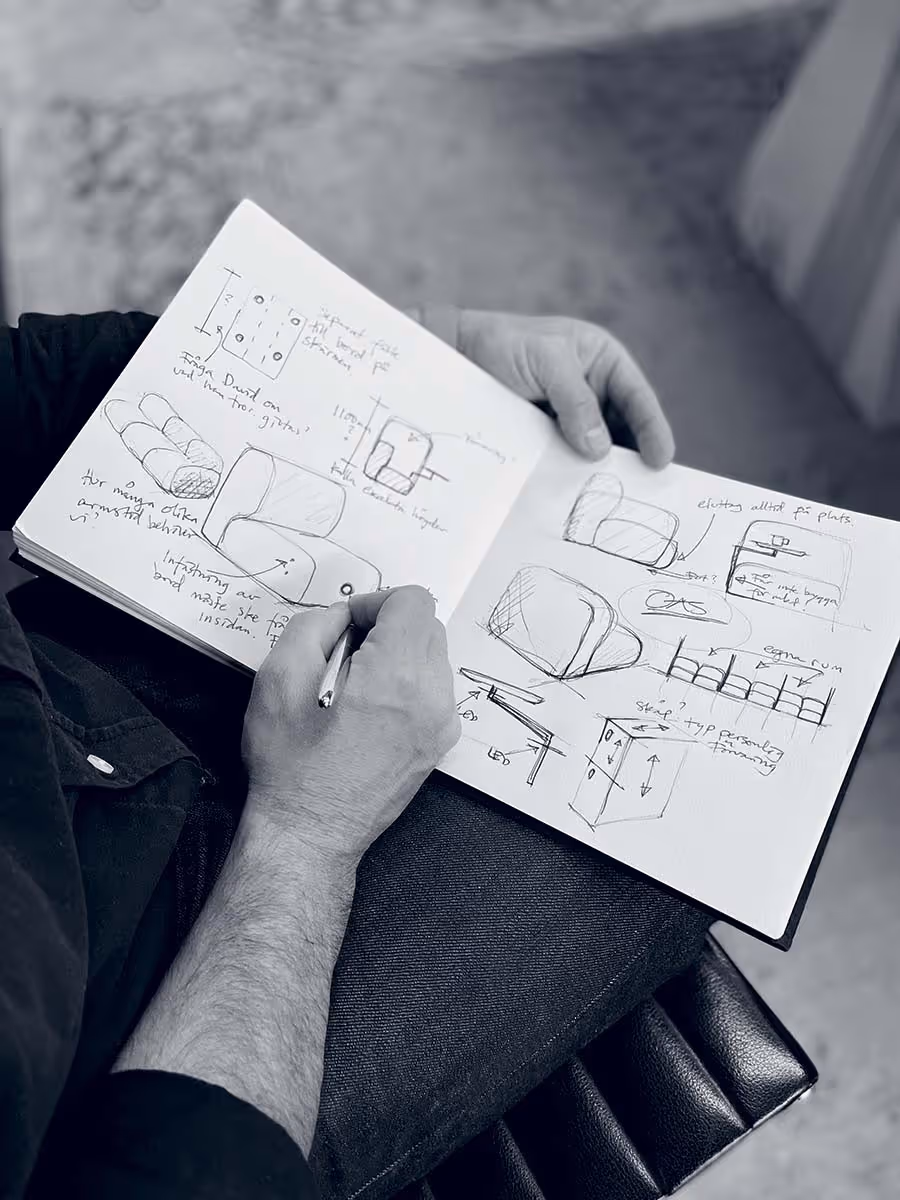 ?
Separat fäste
till bord på
skärmen
Fråga David om
vad han tror. giltas?
1100mm
?
Kolla exakta höjder
Hur många olika
armstöd behöver
vi?
Infästning av
bord måste ske frå
insidan.
eluttag alltid på plats.
Får inte bygga
för mkt!
egna rum
LED
LED
skåp? typ personlig
förvaring